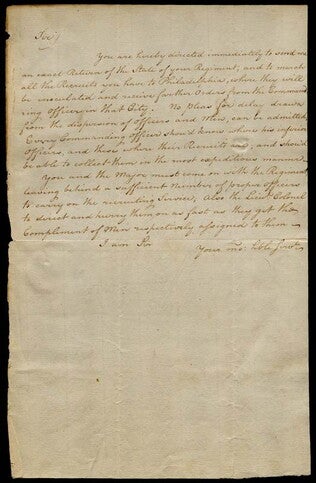 Sir/
You are hereby directed immediately to send me
an exact Return of the State of your Regiment, and to march
all the Recruits you have to Philadelphia, where they will
be inoculated and receive further Orders from the Command
ing officer in that City. No Pleas for delay, drawn
from the dispersion of officers and Men, can be admitted,
Every Commanding officer should know where his inferior
officers, and those where their Recruits are, and should
be able to collect them in the most expeditious manner
You and the Major must come on with the Regiment
leaving behind a sufficient Number of proper officers
to carry on the recruiting Service, Also the Lieut Colonel
to direct and hurry them on as fast as they get the
Compliment of Men respectively assigned to them
I am Sir
Your mo: Hble Servt